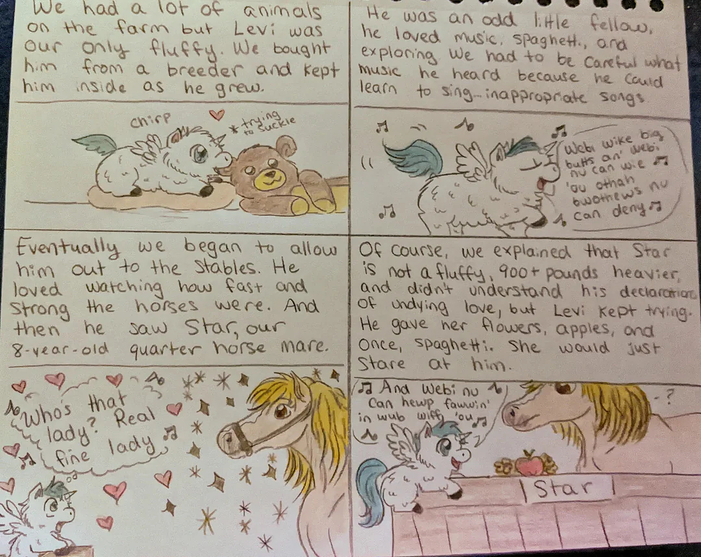 We had a lot of animals
on the farm but Levi was
our only fluffy. We bought
him from a breeder and kept
him inside as he grew.
chirp
*trying
to suckle
He was an odd little fellow,
he loved music, spaghetti, and
exploring we had to be careful what
music he heard because he could
learn to sing... inappropriate songs
Webi wike big
butts an' webi
nu can wie
'ou othah
bwothews nu
can deny
Eventually we began to allow
him out to the stables. He
loved watching how fast and
strong the horses were. And
then he saw Star, our
8-year-old quarter horse mare.
Who's that
lady? Real
fine lady
Of course, we explained that Star
is not a fluffy, 900+ pounds heavier,
and didn't understand his declarations
of undying love, but Levi kept trying.
He gave her flowers, apples, and
once, spaghetti. She would just
stare at him.
And Webi nu
can hewp fawwin'
in wub wiff 'ou
?
Star